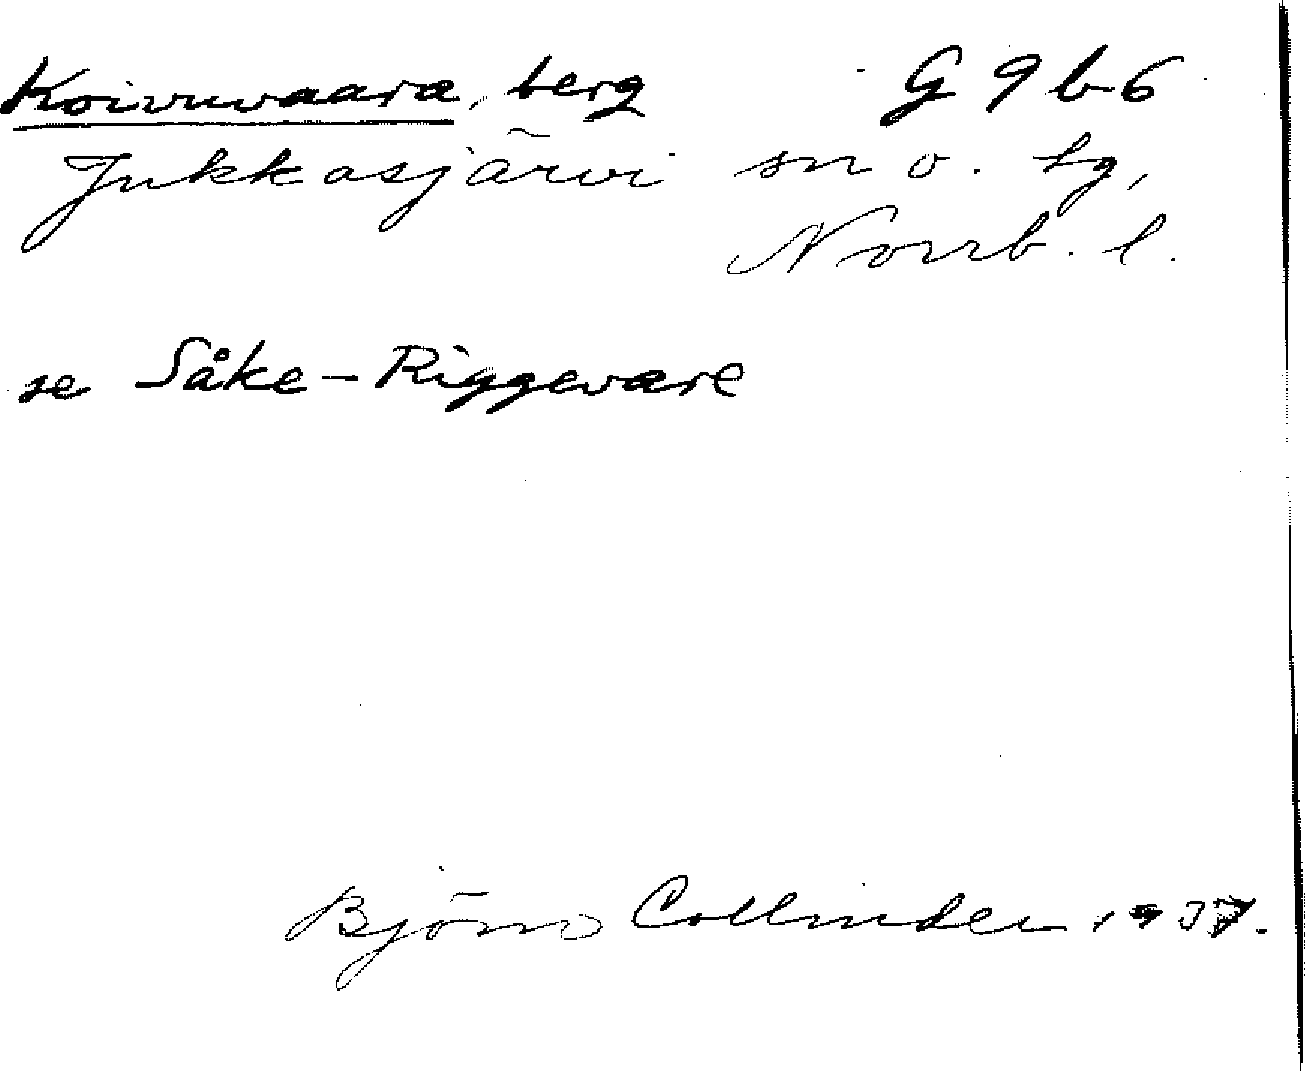 Koivuvaara, berg G 9 b 6
Jukkasjärvi sn o. tg,
Norrb. l.
se Såke-Riggevare
Björn Collinder 1937.